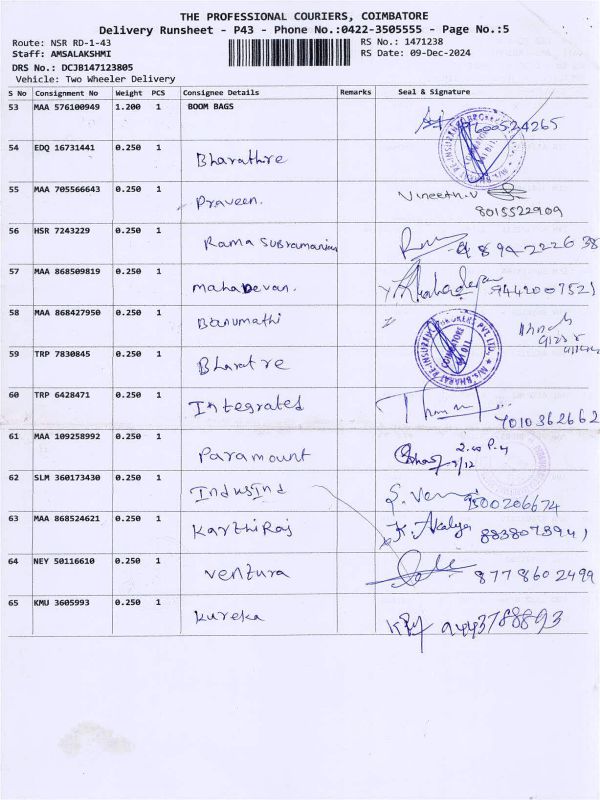 THE PROFESSIONAL COURIERS, COIMBATORE
Delivery Runsheet - P43 - Phone No.:0422-3505555 - Page No.:5
Route: NSR RD-1-43 RS No.: 1471238
Staff: AMSALAKSHMI RS Date: 09-Dec-2024
DRS No.: DCJB147123805
Vehicle: Two Wheeler Delivery
S No Consignment No Weight PCS Consignee Details Remarks Seal & Signature
53 MAA 576100949 1.200 1 BOOM BAGS
54 EDQ 16731441 0.250 1
Bharathire
55 MAA 705566643 0.250 1 Vineeth.V
Praveen. 8015522909
56 HSR 7243229 0.250 1
Rama Subramanian
57 MAA 868509819 0.250 1
Mahadevan. 9442007521
58 MAA 868427950 0.250 1
Banumathi
59 TRP 7830845 0.250 1
Bharatre
60 TRP 6428471 0.250 1
Integrated 7010362662
61 MAA 109258992 0.250 1
Paramount
62 SLM 360173430 0.250 1
IndusInd 9500206674
63 MAA 868524621 0.250 1 K. Akalya
KarthiRaj
64 NEY 50116610 0.250 1
Ventura 8778602499
65 KMU 3605993 0.250 1
Kureka 9443788893